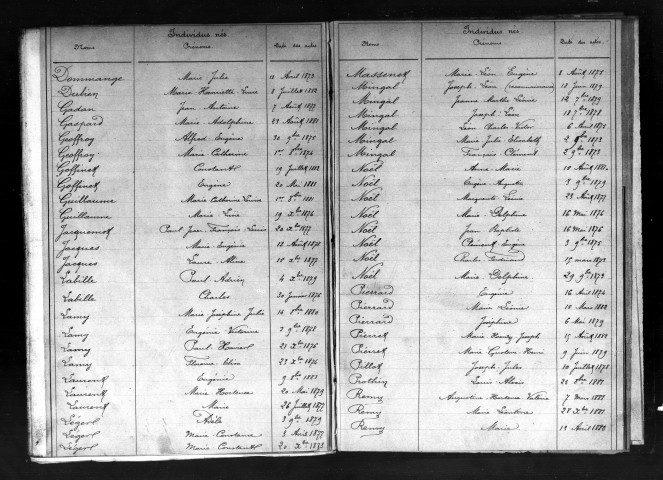 Individus nés
Noms Prénoms Date des actes
Dommange Marie Julie 10 Avril 1873
Dubien Marie Henriette Lucie 8 Juillet 1882
Gadan Jean Antoine 7 Août 1877
Gaspard Marie Adolphine 23 Août 1881
Geoffroy Alfred Eugène 30 9bre 1875
Geoffroy Marie Catherine 1er 8bre 1874
Goffinet Constant 19 Juillet 1882
Goffinet Eugène 20 Mai 1881
Guillaume Marie Catherine 1er 8bre 1881
Guillaume Marie 19 Xbre 1876
Jacquemet Paul Jean François Louis 20 Xbre 1877
Jacques Marie Eugénie 12 Août 1878
Jacques Laure Aline 10 Xbre 1873
Labille Paul Adrien 4 Xbre 1879
Labille Charles 30 Janvier 1876
Lamy Marie Joséphine Julie 14 8bre 1880
Lamy Eugénie Victorine 2 9bre 1878
Lamy Paul 21 Xbre 1876
Lamy Florine 23 Xbre 1874
Laurent Eugénie 9 8bre 1881
Laurent Marie Hortense 20 Mai 1879
Laurent Marie 26 Juillet 1877
Légerl Adèle 3 9bre 1879
Légerl Marie Constance 3 Avril 1877
Légerl Marie Constant 20 Xbre 1873
Individus nés
Noms Prénoms Date des actes
Massenet Marie Léon Eugène 8 Août 1875
Mingal Joseph Léon 18 Juin 1879
Mingal Jeanne Marthe 12 7bre 1879
Mingal Joseph Léon 18 7bre 1878
Mingal Léon Charles Victor 6 Avril 1878
Mingal Marie Julie Elisabeth 2 9bre 1873
Mingal François Clément 2 9bre 1873
Noël Anne Marie 10 Août 1881
Noël Eugène Augustin 3 9bre 1879
Noël Marguerite Louise 23 Août 1877
Noël Marie Delphine 16 Mai 1876
Noël Jean Baptiste 16 Mai 1876
Noël Clément Eugène 3 9bre 1875
Noël Charles Ferdinand 15 mars 1873
Noël Marie Delphine 29 9bre 1873
Pierrard Eugène 16 Avril 1874
Pierrard Marie Léonie 10 Mars 1882
Pierrard Joséphine 6 Mai 1879
Pierret Marie Joseph 15 Août 1880
Pierret Marie Gustave Henri 9 Juin 1879
Pillot Joseph Jules 10 Juillet 1878
Prothin Louis Alexis 21 8bre 1881
Remy Augustine Hortense Valérie 7 Mars 1881
Remy Marie 28 Xbre 1881
Remy Marie 19 Avril 1880